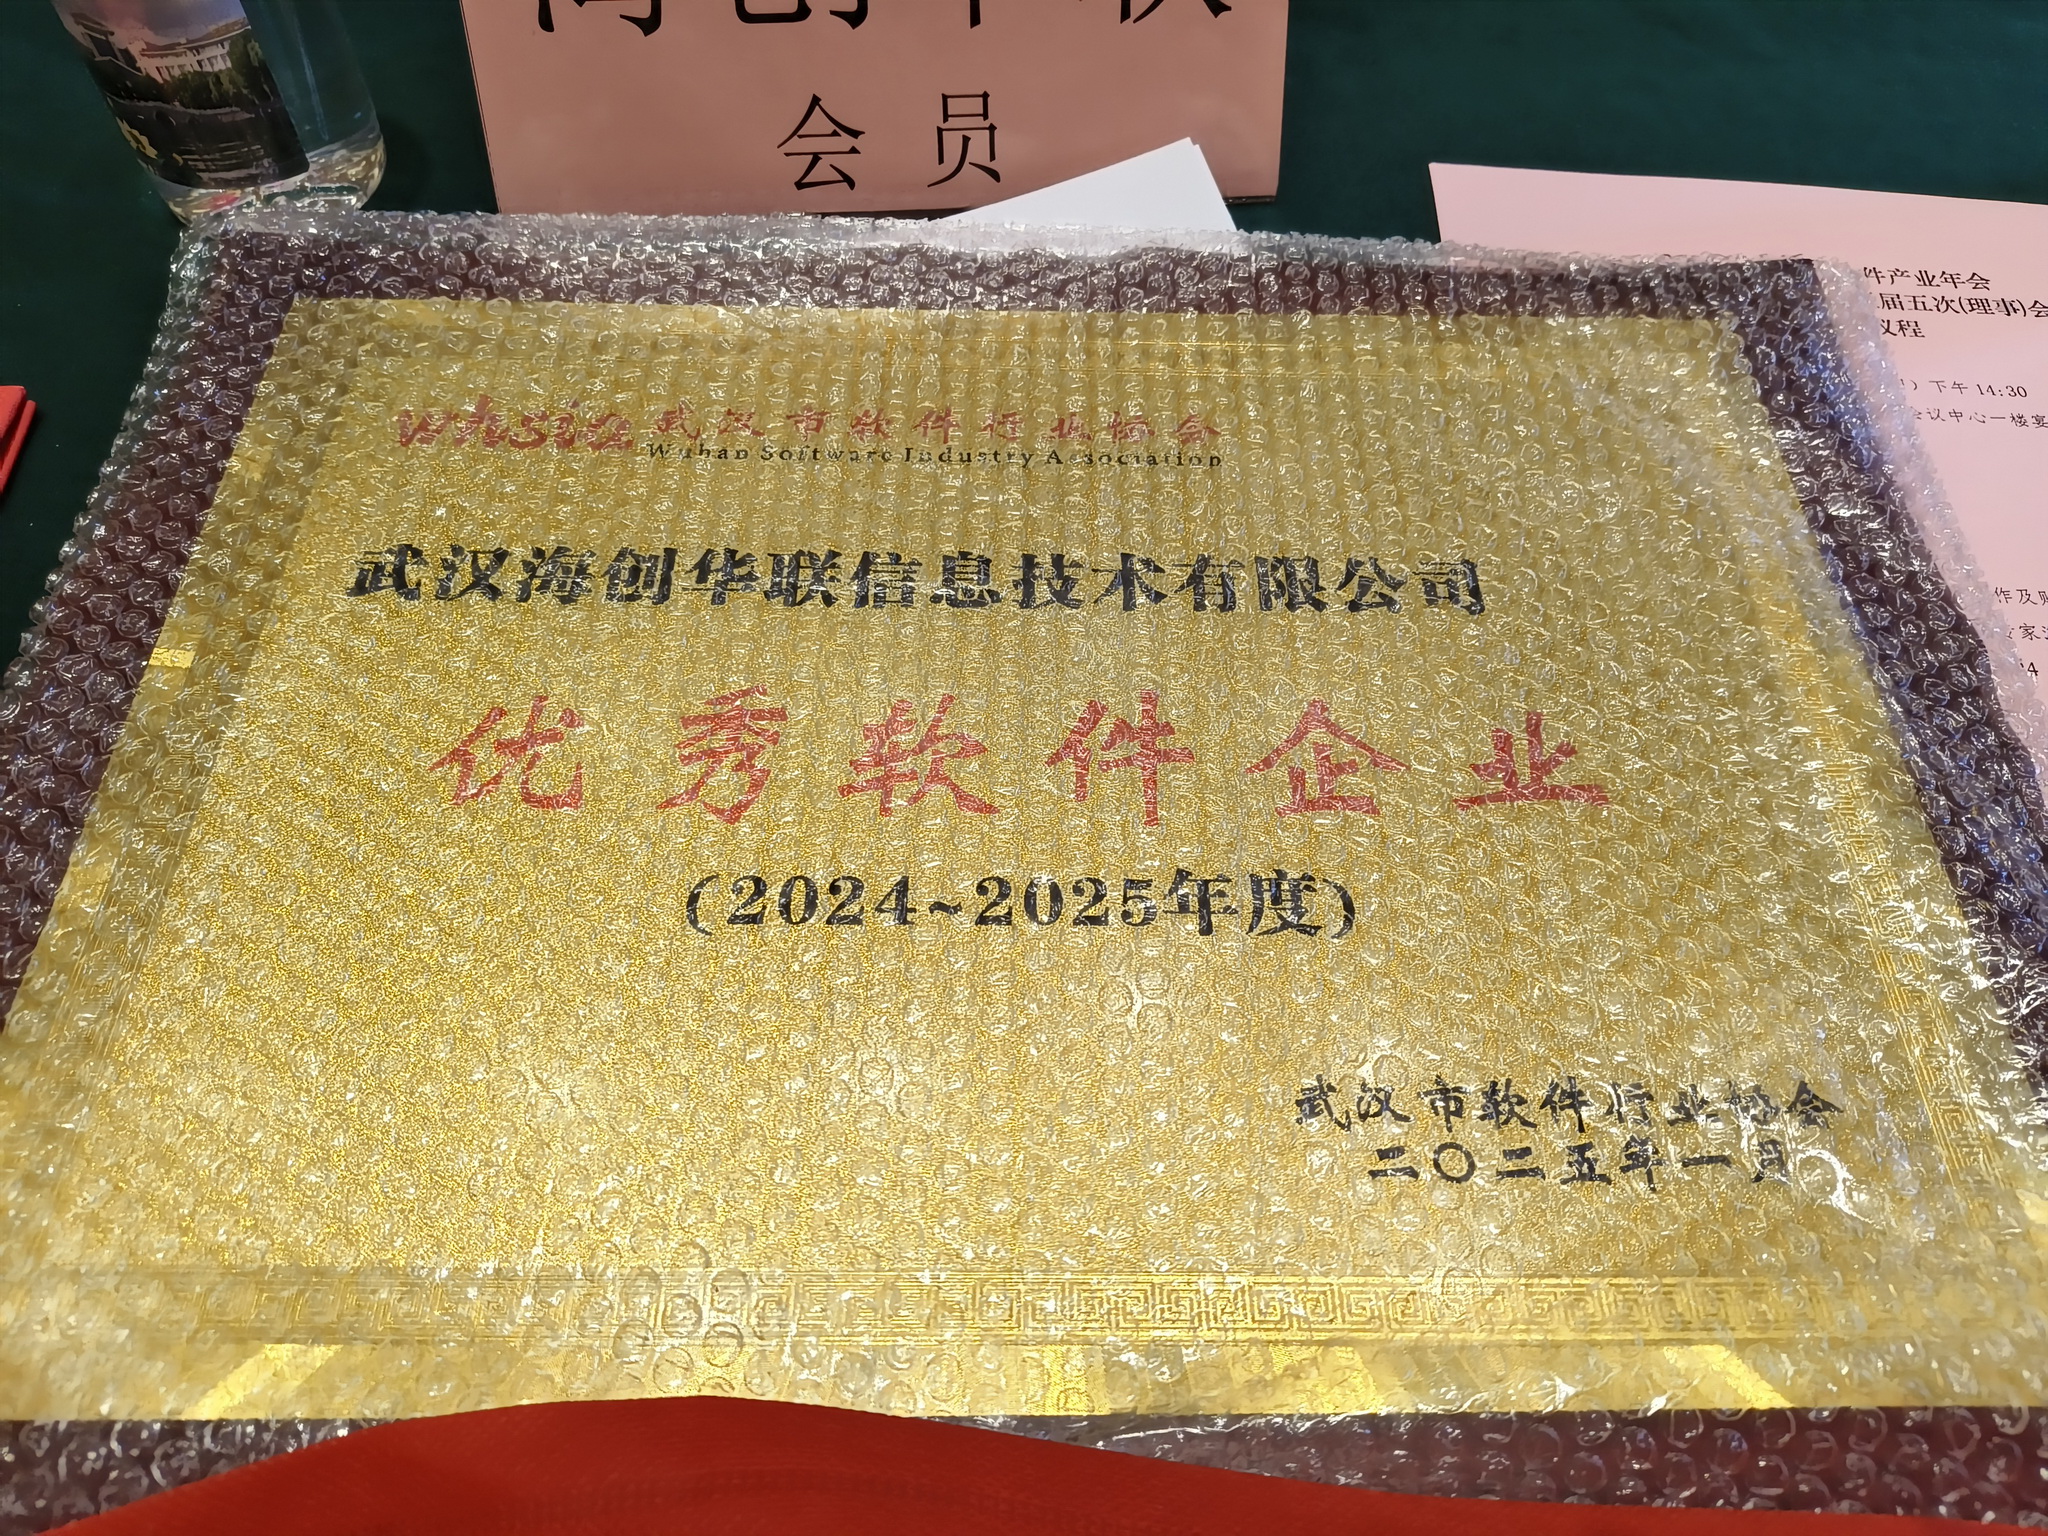 海创华联
会 员
件产业年会
届五次(理事)会
议程
下午 14:30
会议中心一楼宴
作及
家
whsia 武汉市软件行业协会
Wuhan Software Industry Association
武汉海创华联信息技术有限公司
优秀软件企业
(2024~2025年度)
武汉市软件行业协会
二〇二五年一月